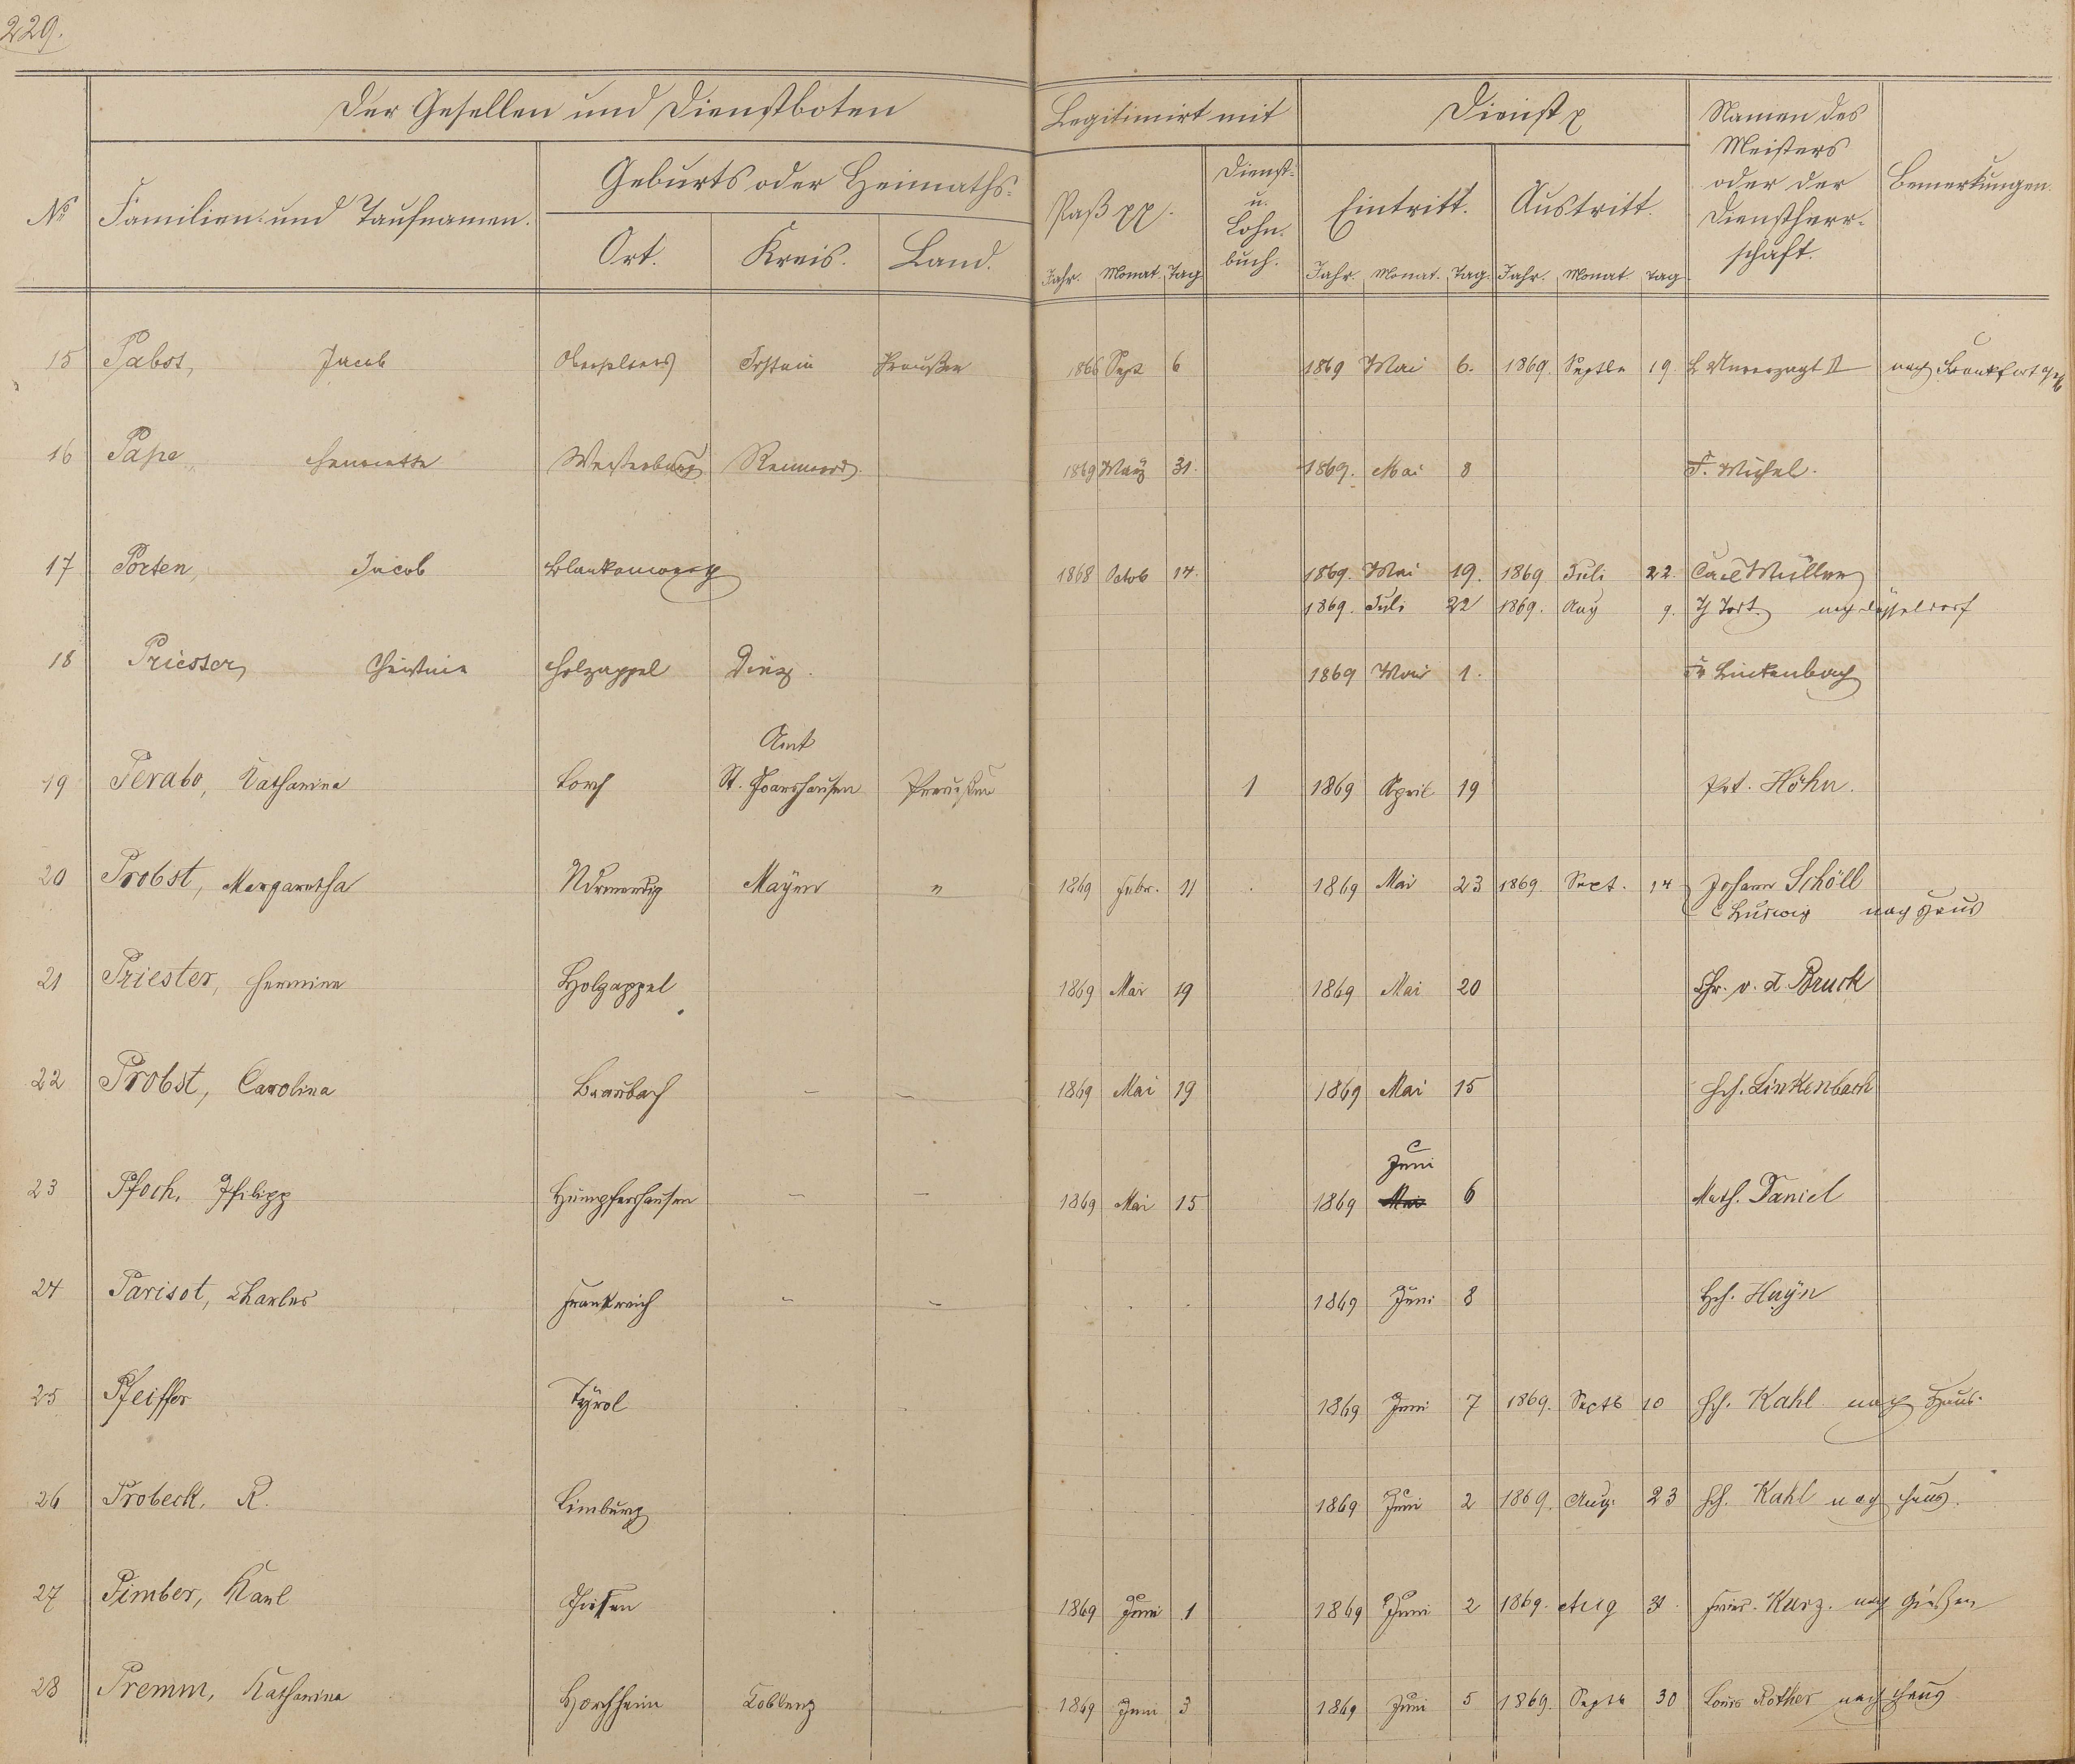 229.
Der Gesellen und Dienstboten
Legitimirt mit
Dienst
Namen des Meisters oder der Dienstherrschaft.
Bemerkungen.
No Familien- und Taufnamen.
Geburts oder Heimaths-
Ort. Kreis. Land.
Paß pp. Dienst- u. Lohn- buch.
Eintritt. Austritt.
Jahr. Monat. Tag Jahr. Monat. Tag. Jahr. Monat. Tag
15 Pabst, Jacob Idstein Preußen 1866 Sept 6 1869 Mai 6. 1869. Septbr 19. Unverzagt II nach Frankfurt
16 Pape, Henriette Westerburg Rennerod 1869 März 31. 1869. Mai 8 F. Michel.
17 Porten, Jacob 1868 Octob 14. 1869. Mai 19. 1869 Juli 22. Carl Müller
1869. Juli 22 1869. Aug 9. nach Düsseldorf
18 Priester, Christine Holzappel Diez. 1869 Mai 1. Linkenbach
Amt
19 Perabo, Katharina Lorch St. Goarshausen Preußen 1 1869 April 19 Höhn.
20 Probst, Margaretha Mayen " 1869 Febr. 11 1869 Mai 23 1869. Sept. 14 Johann Schöll
C Ludwig nach Haus
21 Priester, Hermine Holzappel 1869 Mai 19 1869 Mai 20 Chr. v. d. Bruck
22 Probst, Carolina Braubach - - 1869 Mai 19 1869 Mai 15 Hch. Linkenbach
Juni
23 Pfoch, Philipp Humpfershausen - - 1869 Mai 15 1869 Mai 6 Math. Daniel
24 Parisot, Charles Frankreich - - 1869 Juni 8 Hch. Hayn
25 Pfeiffer Tyrol 1869 Juni 7 1869. Septb 10 Hch. Kahl nach Haus.
26 Probeck, R. Limburg 1869 Juni 2 1869. Aug. 23 Hch. Kahl nach Haus.
27 Pimber, Karl Giessen 1869 Juni 1 1869 Juni 2 1869. Aug 31. Fried. Kurz. nach Gießen
28 Premm, Katharina Horchheim Coblenz 1869 Juni 3 1869 Juni 5 1869. Septb 30 Louis Rother nach Haus